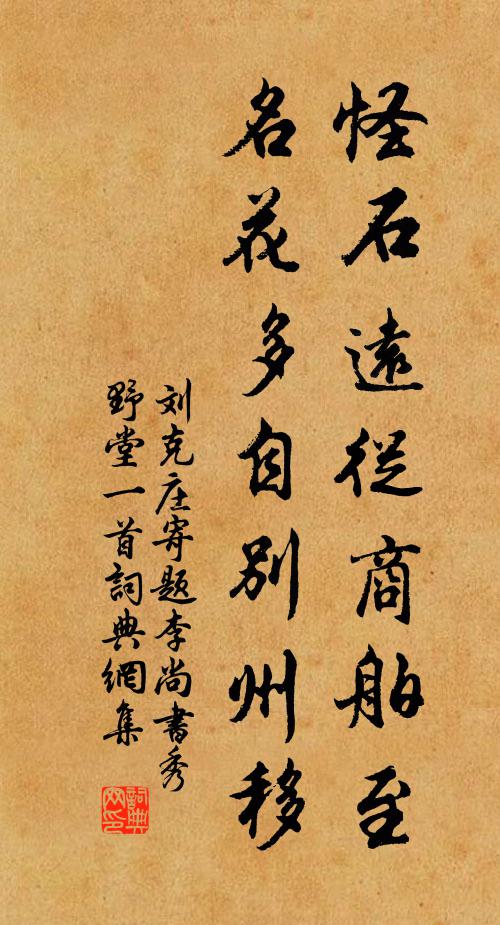 怪石遠從商舶至
名花多自別州移
刘克庄寄题李尚書秀
野堂一首詞典網集
詞典
网印